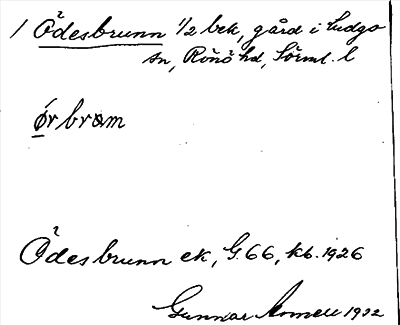 1 Ödesbrunn 1/2 bek, gård i Ludgo
sn, Rönö hd, Sörml. l
Ödesbrunn ek, G.66, kb. 1926
Gunnar 1932